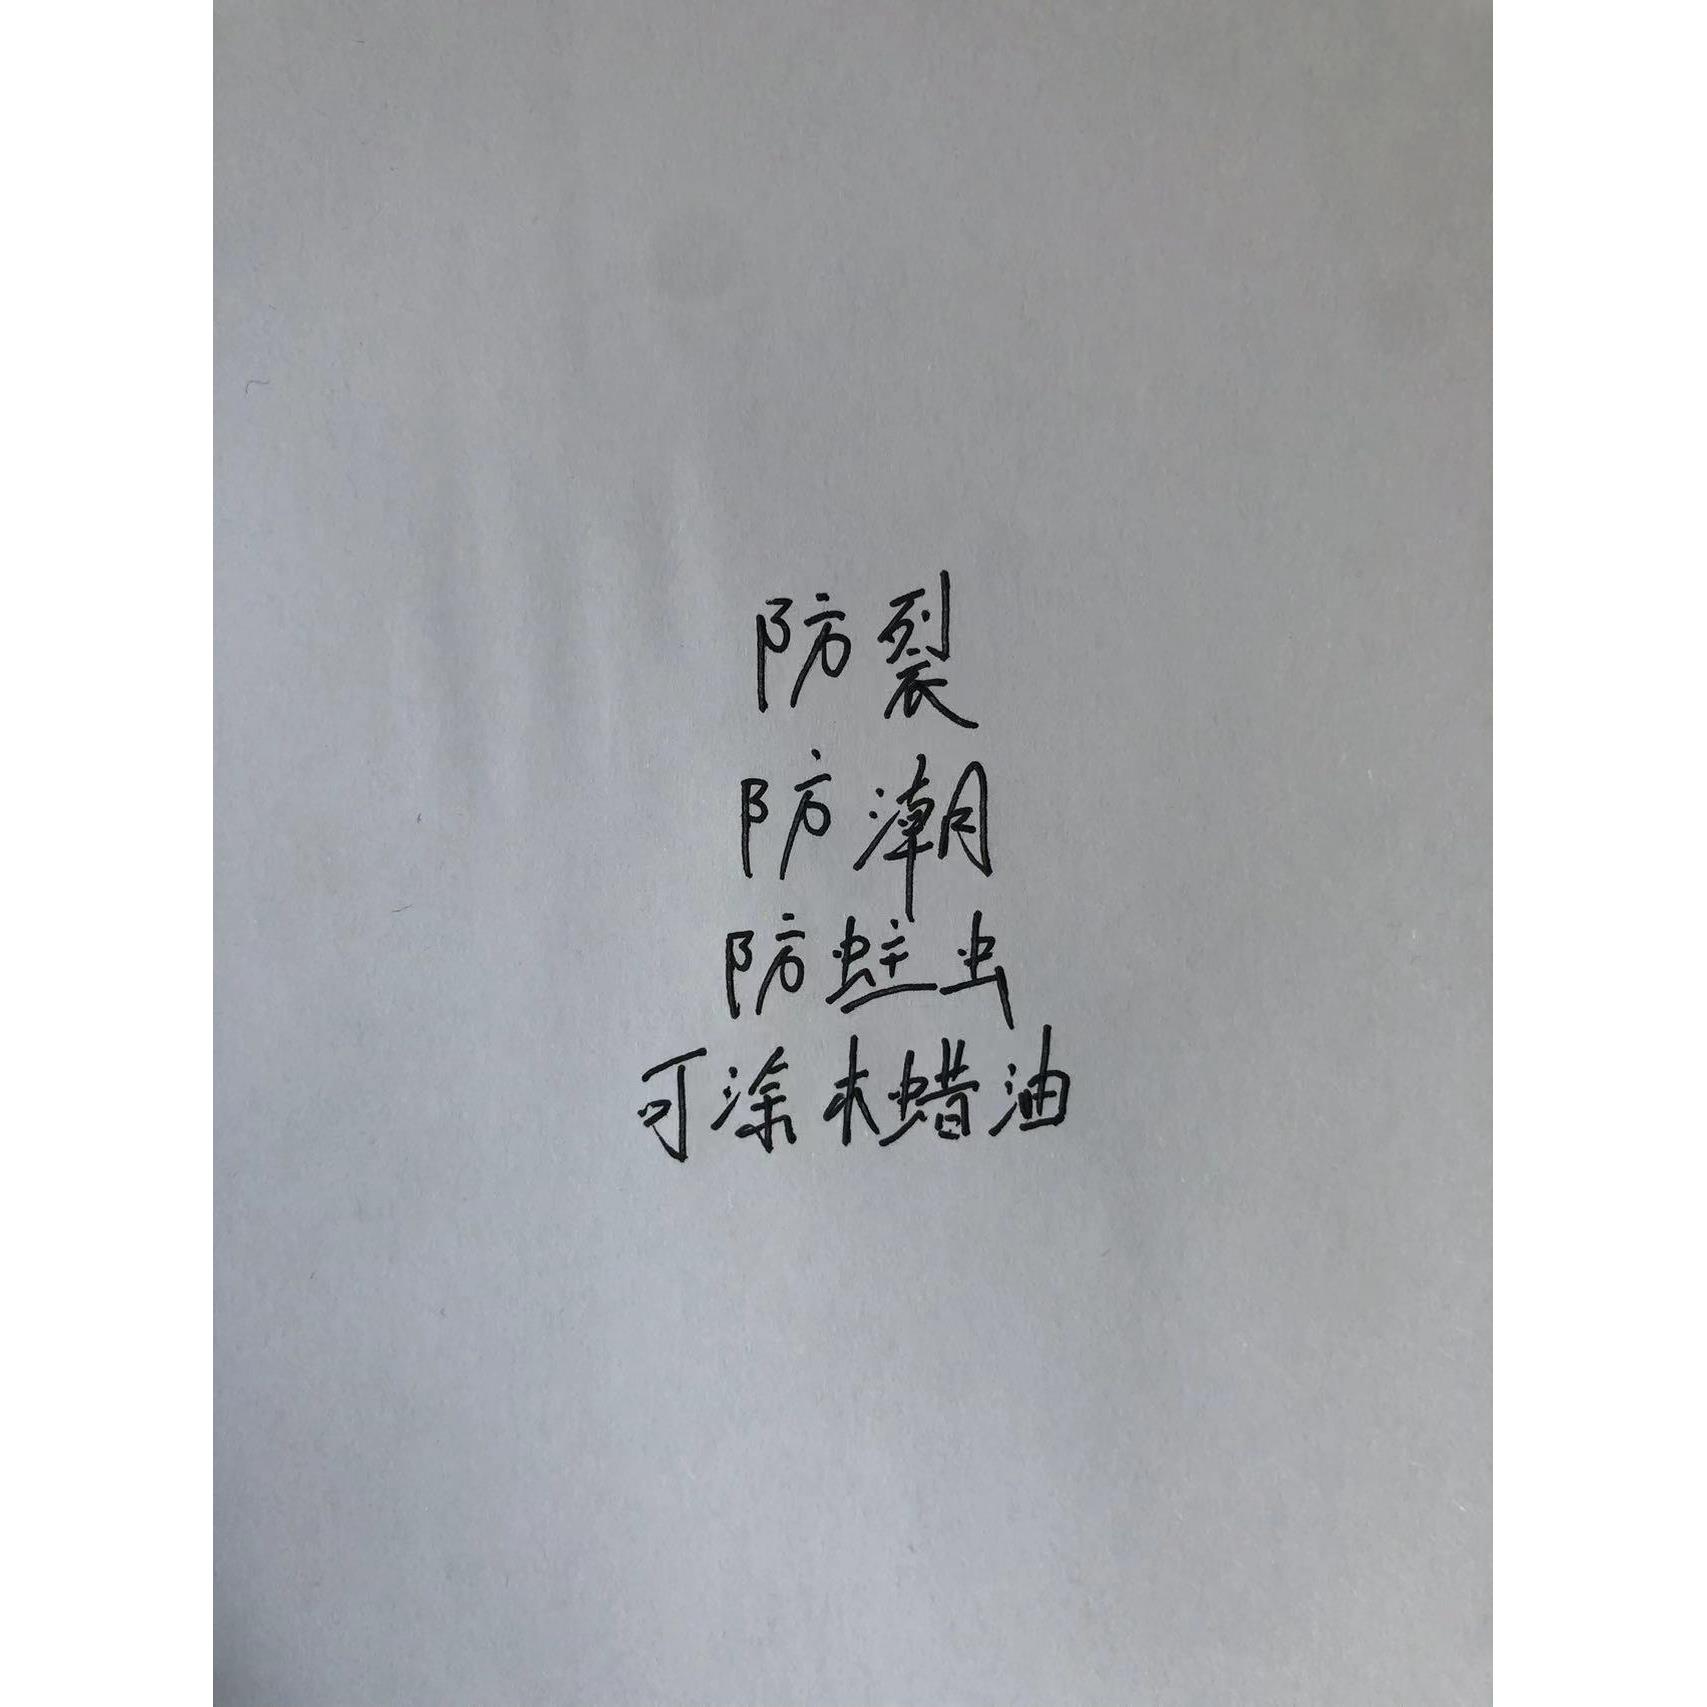 防裂
防潮
防蛀虫
可涂木蜡油